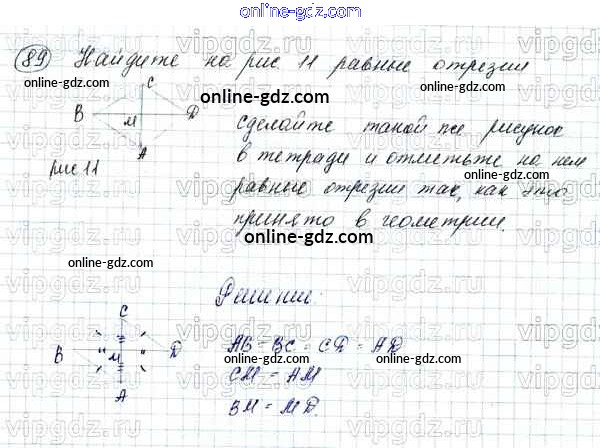 online-gdz.com
89 Найдите на рис 11 равные отрезки
C
online-gdz.com
B M D
A
рис 11
сделайте такой же рисунок
в тетради и отметьте на нем
равные отрезки так, как это
принято в геометрии.
online-gdz.com
online-gdz.com
online-gdz.com
Решение:
C
B M D
A
AB = BC = CD = AD
CM = AM
BM = MD.
online-gdz.com
online-gdz.com
online-gdz.com
vipgdz.com